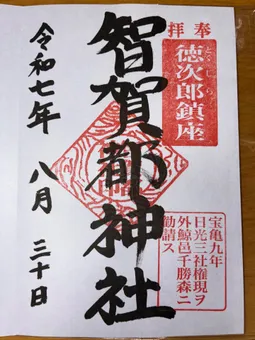 奉拝
徳次郎鎮座
智賀都神社
宝亀九年
日光三社権現ヲ
外鯨邑千勝森ニ
勧請ス
令和七年 八月 三十日